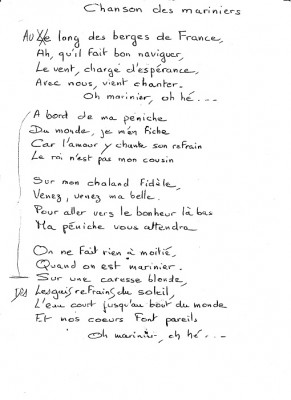 Chanson des mariniers
Au long des berges de France,
Ah, qu'il fait bon naviguer,
Le vent, chargé d'espérance,
Avec nous, vient chanter.
Oh marinier, oh hé...
A bord de ma péniche
Du monde, je m'en fiche
Car l'amour y chante son refrain
Le roi n'est pas mon cousin
Sur mon chaland fidèle,
Venez, venez ma belle.
Pour aller vers le bonheur là bas
Ma péniche vous attendra
On ne fait rien à moitié,
Quand on est marinier.
Sur une caresse blonde,
Des gais refrains du soleil,
L'eau court jusqu'au bout du monde
Et nos coeurs font pareils
Oh marinier, oh hé...